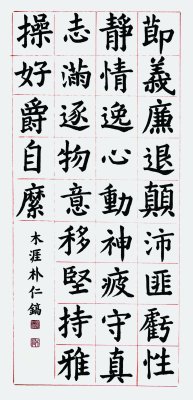 節義廉退顛沛匪虧性
靜情逸心動神疲守真
志滿逐物意移堅持雅
操好爵自縻
木涯朴仁鎬